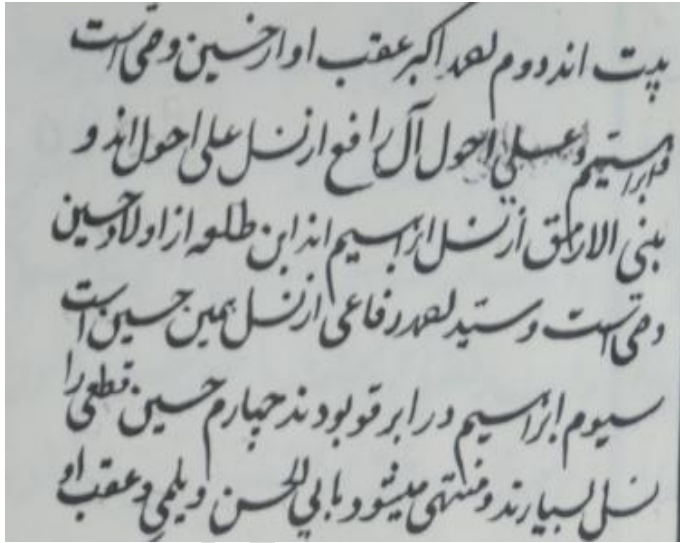 بیت اند دوم احمد اکبر عقب او از حسین وصی است
و ابراهیم و علی احول آل رافع از نسل علی احول اند و
بنی الازرق از نسل ابراهیم اند ابن طلعه از اولاد حسین
وصی است و سید احمد رفاعی از نسل همین حسین است
سیوم ابراهیم در ابرقو بودند چهارم حسین قطعی را
نسل بسیارند و منتهی میشود بابی الحسن دیلمی و عقب او